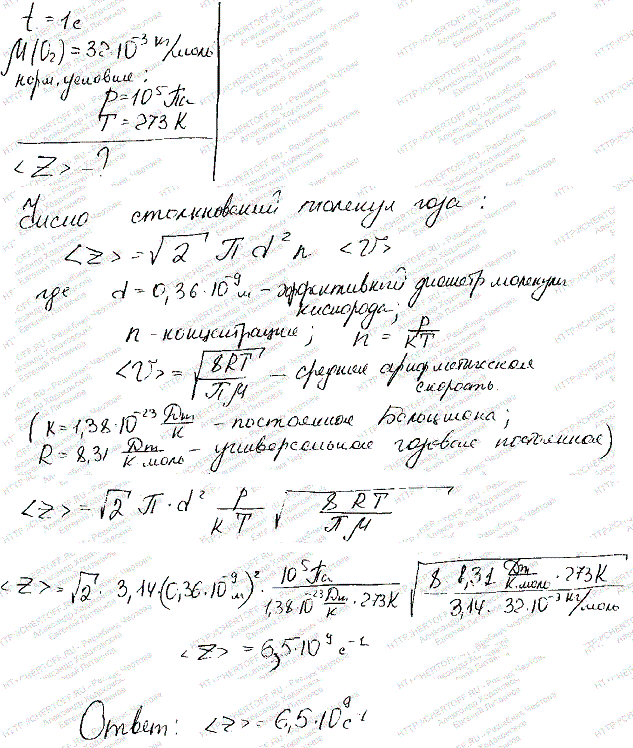 t = 1с
M(O₂) = 32·10⁻³ кг/моль
норм. условие:
P = 10⁵ Па
T = 273 К
<Z> - ?
Число столкновений молекул газа:
<Z> = √2 π d² n <V>
где d = 0,36·10⁻⁹ м - эффективный диаметр молекулы
кислорода;
n - концентрация; n = P/кT
<V> = √(8RT/πM) - средняя арифметическая
скорость.
(к = 1,38·10⁻²³ Дж/К - постоянная Больцмана;
R = 8,31 Дж/К моль - универсальная газовая постоянная)
<Z> = √2 π·d² P/кT √(8RT/πM)
<Z> = √2 · 3,14·(0,36·10⁻⁹ м)² · 10⁵ Па/(1,38·10⁻²³ Дж/К · 273К) √(8 8,31 Дж/К.моль · 273К/(3,14· 32·10⁻³ кг/моль))
<Z> = 6,5·10⁹ с⁻¹
Ответ: <Z> = 6,5·10⁹ с⁻¹